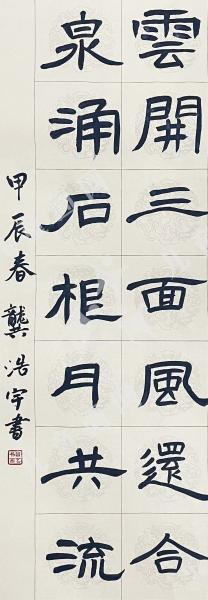 雲開三面風還合
泉涌石根月共流
甲辰春龔浩宇書